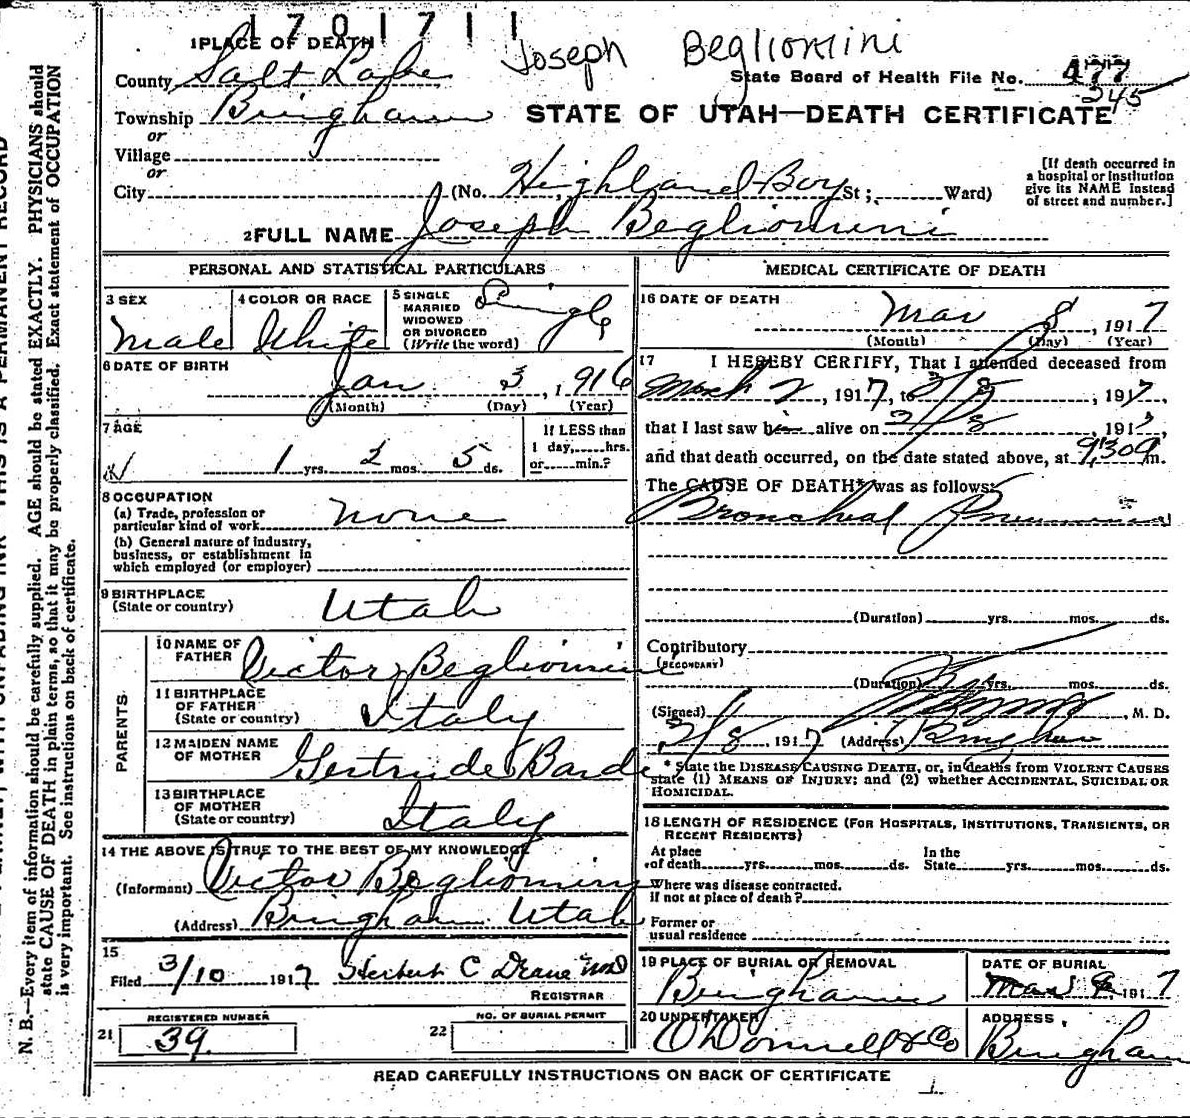 1701711
1 PLACE OF DEATH
Joseph Begliomini
County Salt Lake
State Board of Health File No. 477
245
Township Bingham
STATE OF UTAH—DEATH CERTIFICATE
or
Village
or
City (No. Highland Boy St; Ward)
[If death occurred in
a hospital or institution
give its NAME instead
of street and number.]
2 FULL NAME Joseph Begliomini
PERSONAL AND STATISTICAL PARTICULARS
3 SEX
Male
4 COLOR OR RACE
White
5 SINGLE
MARRIED
WIDOWED
OR DIVORCED
(Write the word)
Single
6 DATE OF BIRTH
Jan 3, 1916
(Month) (Day) (Year)
7 AGE
1 yrs. 2 mos. 5 ds.
If LESS than
1 day, hrs.
or min.?
8 OCCUPATION
(a) Trade, profession or
particular kind of work none
(b) General nature of industry,
business, or establishment in
which employed (or employer)
9 BIRTHPLACE
(State or country) Utah
PARENTS
10 NAME OF
FATHER Victor Begliomini
11 BIRTHPLACE
OF FATHER
(State or country) Italy
12 MAIDEN NAME
OF MOTHER Gertrude Bardi
13 BIRTHPLACE
OF MOTHER
(State or country) Italy
14 THE ABOVE IS TRUE TO THE BEST OF MY KNOWLEDGE
(Informant) Victor Begliomini
(Address) Bingham Utah
15
Filed 3/10 1917 Herbert C
REGISTRAR
REGISTERED NUMBER
21 39.
NO. OF BURIAL PERMIT
22
MEDICAL CERTIFICATE OF DEATH
16 DATE OF DEATH
Mar 8, 1917
(Month) (Day) (Year)
17 I HEREBY CERTIFY, That I attended deceased from
March 2, 1917, to 3/8, 1917,
that I last saw him alive on 3/8, 1917,
and that death occurred, on the date stated above, at 9:30 a m.
The CAUSE OF DEATH* was as follows:
Bronchial Pneumonia
(Duration) yrs. mos. ds.
Contributory
(SECONDARY)
(Duration) yrs. mos. ds.
(Signed) , M. D.
3/8, 1917 (Address) Bingham
* State the DISEASE CAUSING DEATH, or, in deaths from VIOLENT CAUSES
state (1) MEANS OF INJURY; and (2) whether ACCIDENTAL, SUICIDAL OR
HOMICIDAL.
18 LENGTH OF RESIDENCE (FOR HOSPITALS, INSTITUTIONS, TRANSIENTS, OR
RECENT RESIDENTS)
At place
of death yrs. mos. ds.
In the
State yrs. mos. ds.
Where was disease contracted.
if not at place of death?
Former or
usual residence
19 PLACE OF BURIAL OR REMOVAL
Bingham
DATE OF BURIAL
Mar 9, 1917
20 UNDERTAKER
O'Donnell & Co
ADDRESS
Bingham
READ CAREFULLY INSTRUCTIONS ON BACK OF CERTIFICATE
THIS IS A PERMANENT RECORD
N. B.—Every item of information should be carefully supplied. AGE should be stated EXACTLY. PHYSICIANS should
state CAUSE OF DEATH in plain terms, so that it may be properly classified. Exact statement of OCCUPATION
is very important. See instructions on back of certificate.